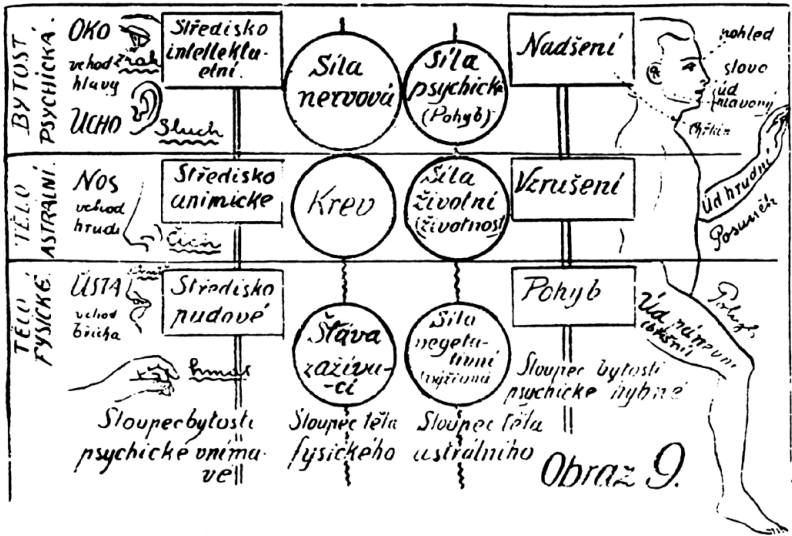 BYTOST
PSYCHICKÁ.
OKO
vchod
zrak
hlavy
UCHO
Sluch
Středisko
intellektu-
elní.
Síla
nervová
Síla
psychické
(Pohyb)
Nadšení
pohled
slovo
úd
hlavový
TĚLO
ASTRÁLNÍ.
NOS
vchod
hrudi
Čich
Středisko
animické
Krev
Síla
životní
(životnost)
Vzrušení
Úd hrudní
Posuněk
TĚLO
FYSICKÉ.
ÚSTA
vchod
břicha
hmat
Středisko
pudové
Šťáva
zažíva-
-cí
Síla
negeta-
tivní
Pohyb
Sloupec bytosti
psychické hybné
Sloupec bytosti
psychické vníma-
vé
Sloupec těla
fysického
Sloupec těla
astrálního
Obraz 9.